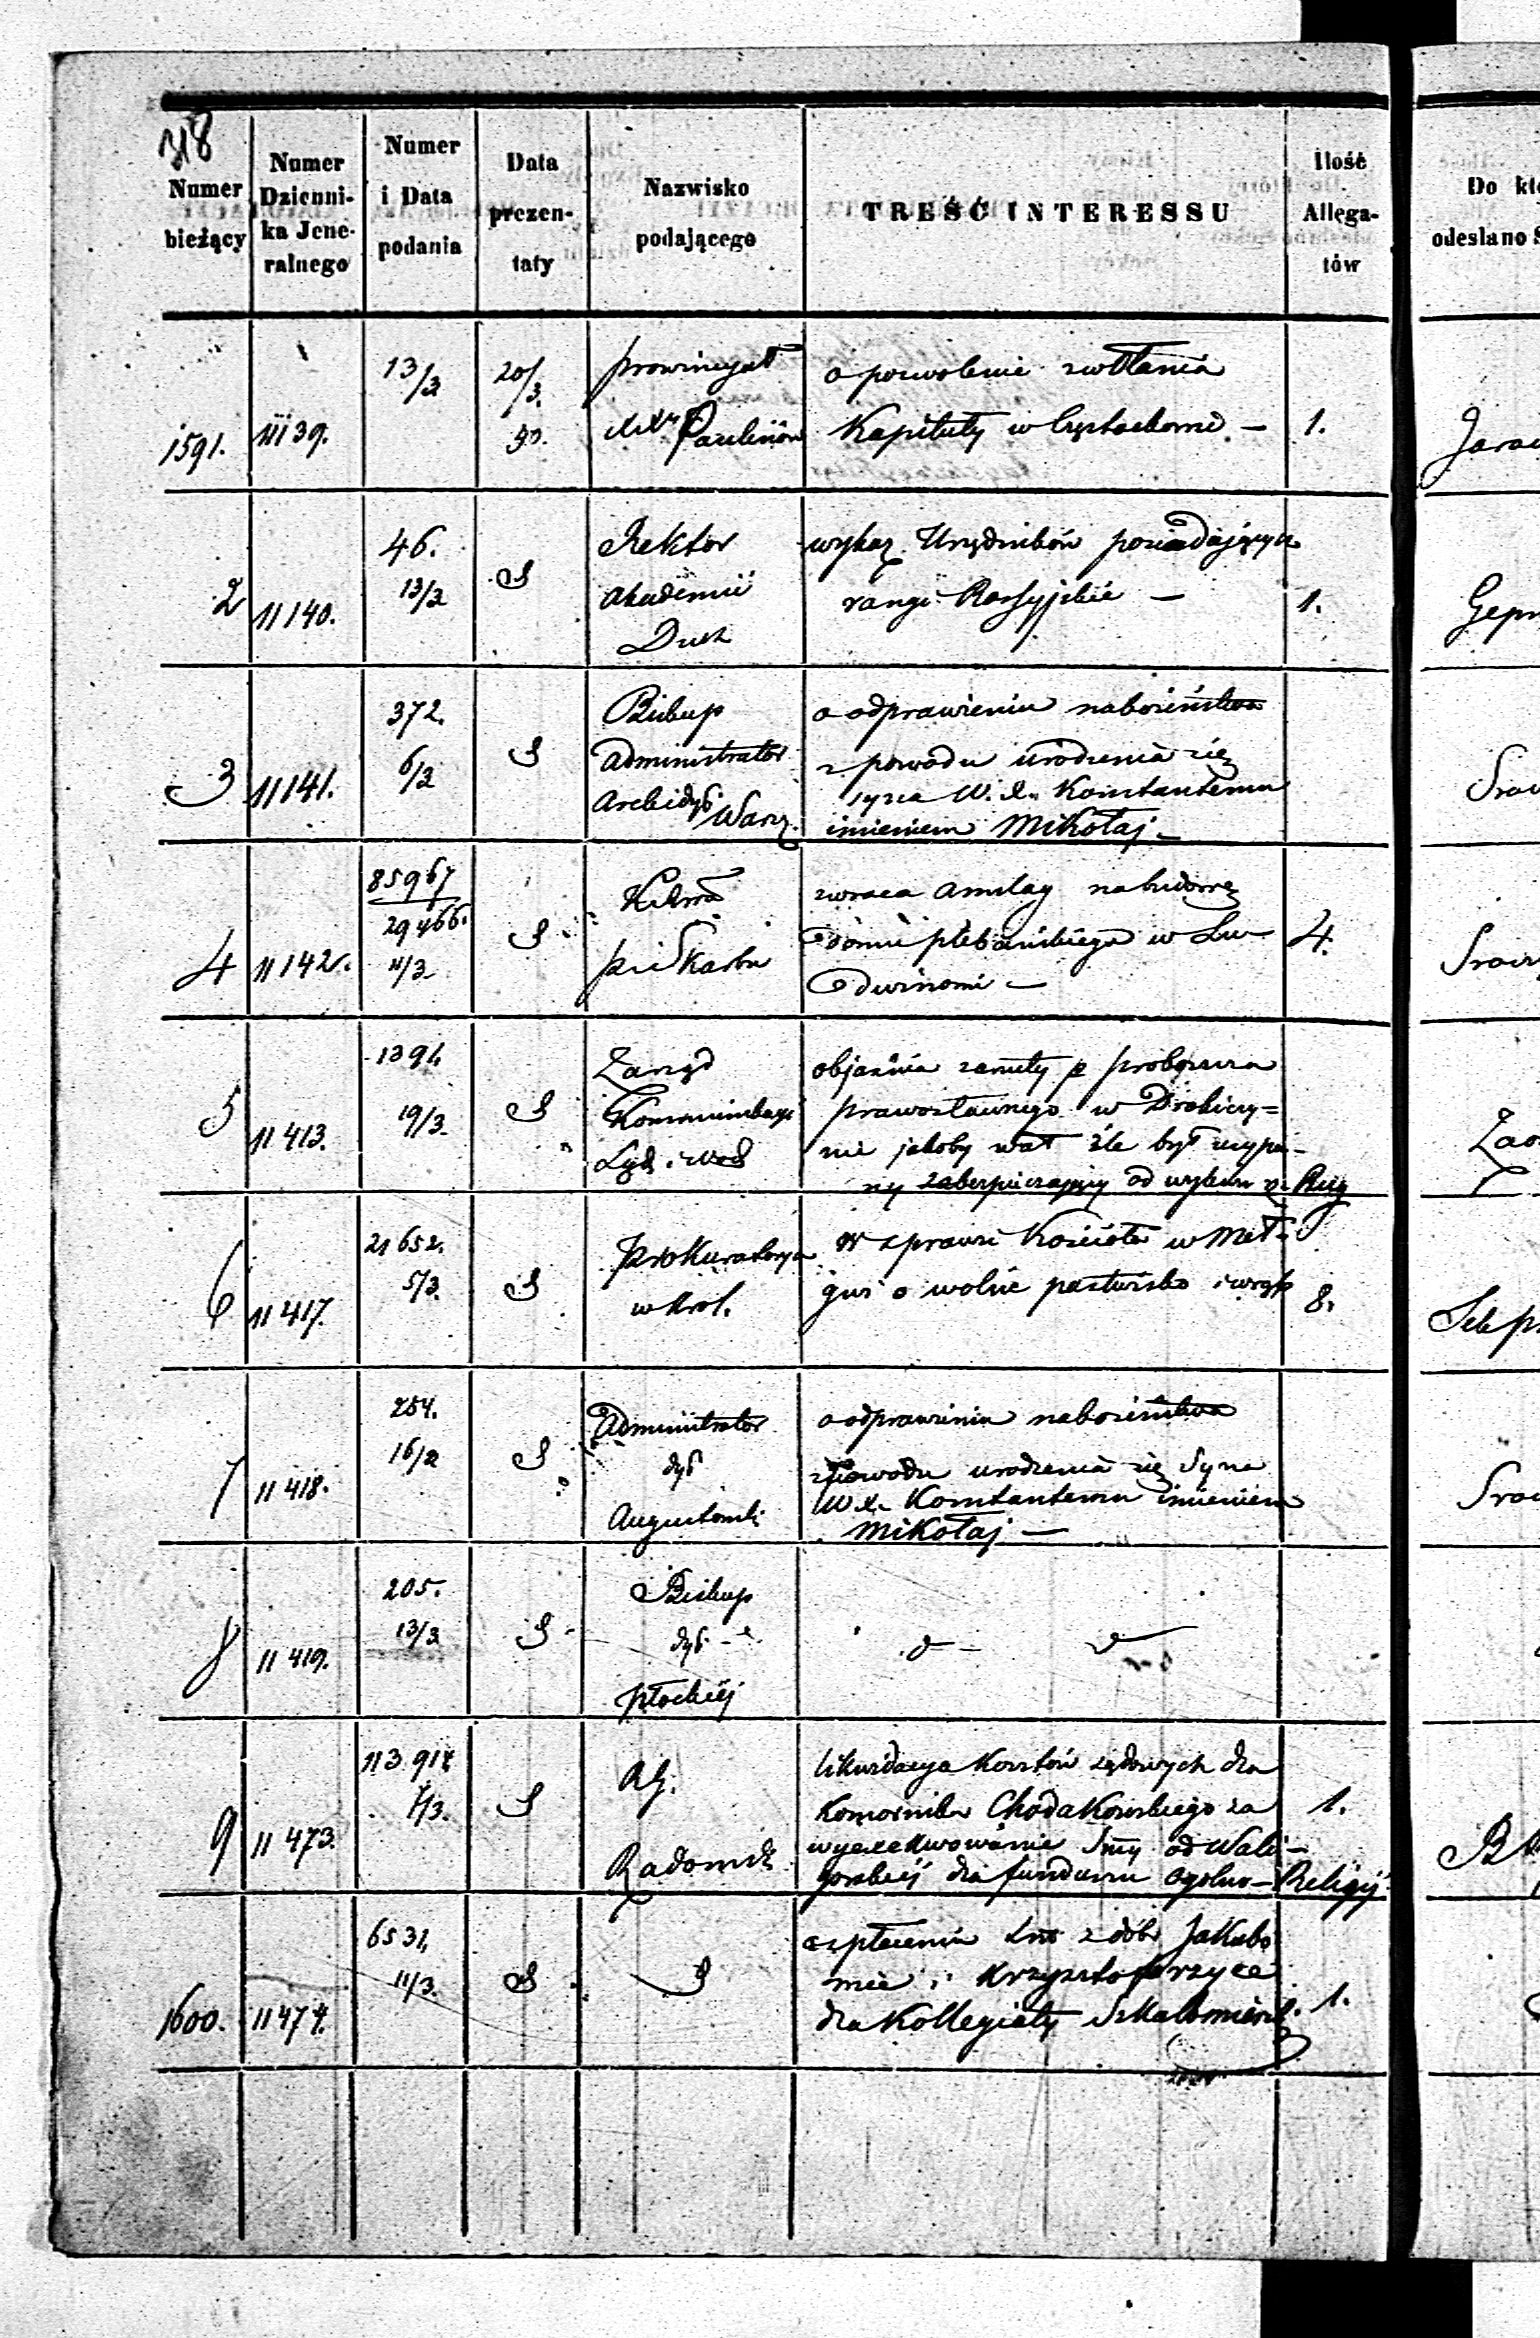 318
Numer bieżący
Numer Dzienni-ka Jene-ralnego
Numer i Data podania
Data prezen-taty
Nazwisko podającego
TREŚĆ INTERESSU
Ilość Allega-tów
Do
odesłano
1591. 11139. 13/3 20/3. 50. Prowincyał Paulinów
o pozwolenie zwołania
Kapituły w Częstochowie — 1.
2 11140. 46. 13/3 S Rektor Akademii Duch
wykaz Urzędników posiadających
rangi Rossyjskie — 1.
3 11141. 372. 6/3 S Biskup Administrator Archidyć Warsz.
o odprawieniu nabożeństwa
z powodu urodzenia się
syna W. X. Konstantemu
imieniem Mikołaj —
4 11142. 85967 29466. 11/3 S Skarbu
zwraca na budowę
domu plebańskiego w Lu- 4.
dwinowi —
5 11413. 1391. 19/3. S Zarząd Kommunikacyi Ląd. i Wod
objaśnia zarzuty proboszcza
prawosławnego w Drohiczy=
nie jakoby wał źle był usypa-
ny zabezpieczający od wylewu rz. Bug
6 11417. 21652. 5/3. S Prokuratorya w Król.
W sprawie Kościoła w
o wolne pastwisko i wrąb 8.
7 11418. 254. 16/3 S Administrator dyć Augustowski
o odprawieniu nabożeństwa
z powodu urodzenia się Syna
W X. Konstantemu imieniem
Mikołaj —
8 11419. 205. 13/3 S Biskup dyć. Płockiéj
d — d
9 11473. 113.914 7/3. S RG. Radomsk
likwidacya kosztów sądowych dla
Komornika Chodakowskiego za 1.
wyexekwowanie Sumy od Wali-
gorskiéj dla funduszu ogólno-Religij
1600. 11474. 6531. 11/3. S S
z dóbr Jakubo
wie i Krzysztoforzyce
dla Kollegiaty Skalbmiersk. 1.